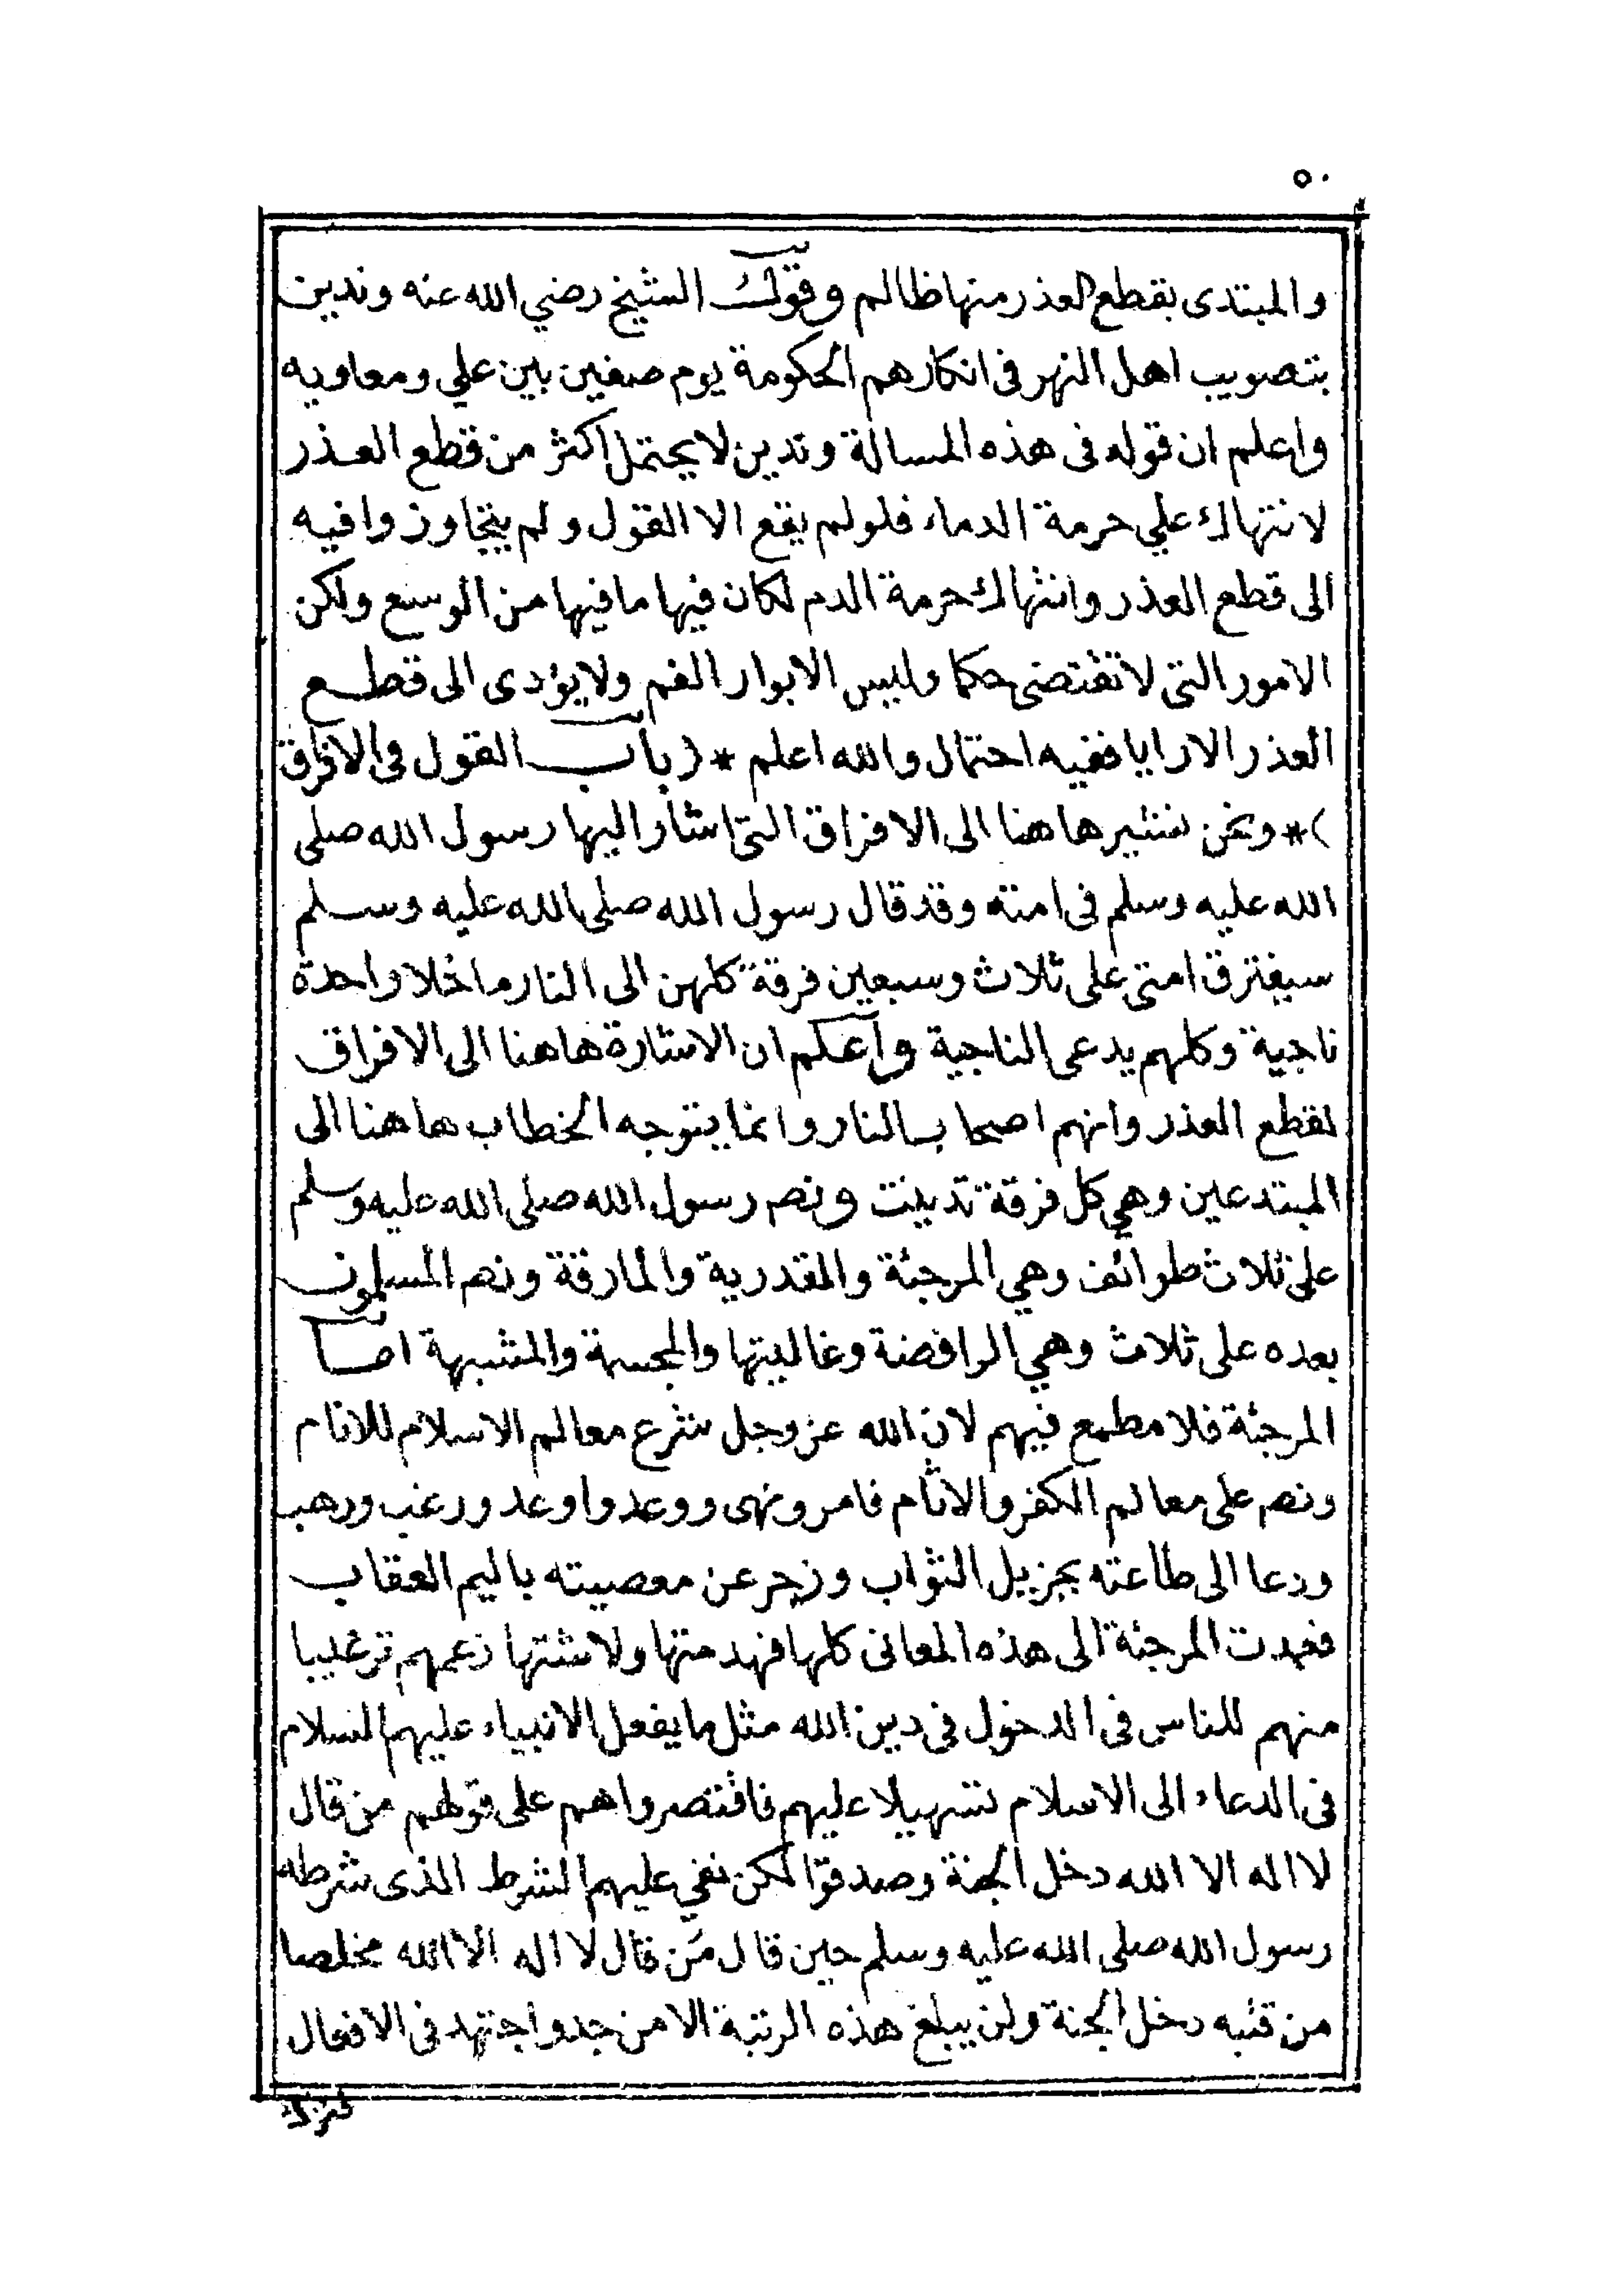 ٥٠
والمبتدى بقطع العذر منها ظالم وقول الشيخ رضي الله عنه وندين
بتصويب اهل النهر فى انكارهم الحكومة يوم صفين بين علي ومعاويه
واعلم ان قوله فى هذه المسالة وندين لا يحتمل اكثر من قطع العذر
لانتهاك علي حرمة الدماء فلو لم يقع الا القول ولم يتجاوزوا فيه
الى قطع العذر وانتهاك حرمة الدم لكان فيها ما فيها من الوسع ولكن
الامور التى لا تقتضى حكما وليس الا بوار الفم ولا يؤدى الى قطع
العذر الا رايا ففيه احتمال والله اعلم * ( باب القول فى الافراق
) * ونحن نشير هاهنا الى الافراق التى اشار اليها رسول الله صلى
الله عليه وسلم فى امته وقد قال رسول الله صلى الله عليه وسلم
سيفترق امتى على ثلاث وسبعين فرقة كلهن الى النار ما خلا واحدة
ناجية وكلهم يدعى الناجية واعلم ان الاشارة هاهنا الى الافراق
لقطع العذر وانهم اصحاب النار وانما يتوجه الخطاب هاهنا الى
المبتدعين وهي كل فرقة تدينت ونص رسول الله صلى الله عليه وسلم
على ثلاث طوائف وهي المرجئة والقدرية والمارقة ونص المسلمون
بعده على ثلاث وهي الرافضة وغاليتها والمجسمة والمشبهة اما
المرجئة فلا مطمع فيهم لان الله عز وجل شرع معالم الاسلام للانام
ونص على معالم الكفر والاثام فامر ونهى ووعد واوعد ورغب ورهب
ودعا الى طاعته بجزيل الثواب وزجر عن معصيته باليم العقاب
فعمدت المرجئة الى هذه المعانى كلها فهدمتها ولاشتها زعمهم ترغيبا
منهم للناس فى الدخول فى دين الله مثل ما يفعل الانبياء عليهم السلام
فى الدعاء الى الاسلام تسهيلا عليهم فاقتصروا هم على قولهم من قال
لا اله الا الله دخل الجنة وصدقوا لكن نفي عليهم الشرط الذى شرطه
رسول الله صلى الله عليه وسلم حين قال من قال لا اله الا الله مخلصا
من قلبه دخل الجنة ولن يبلغ هذه الرتبة الا من جد واجتهد فى الافعال